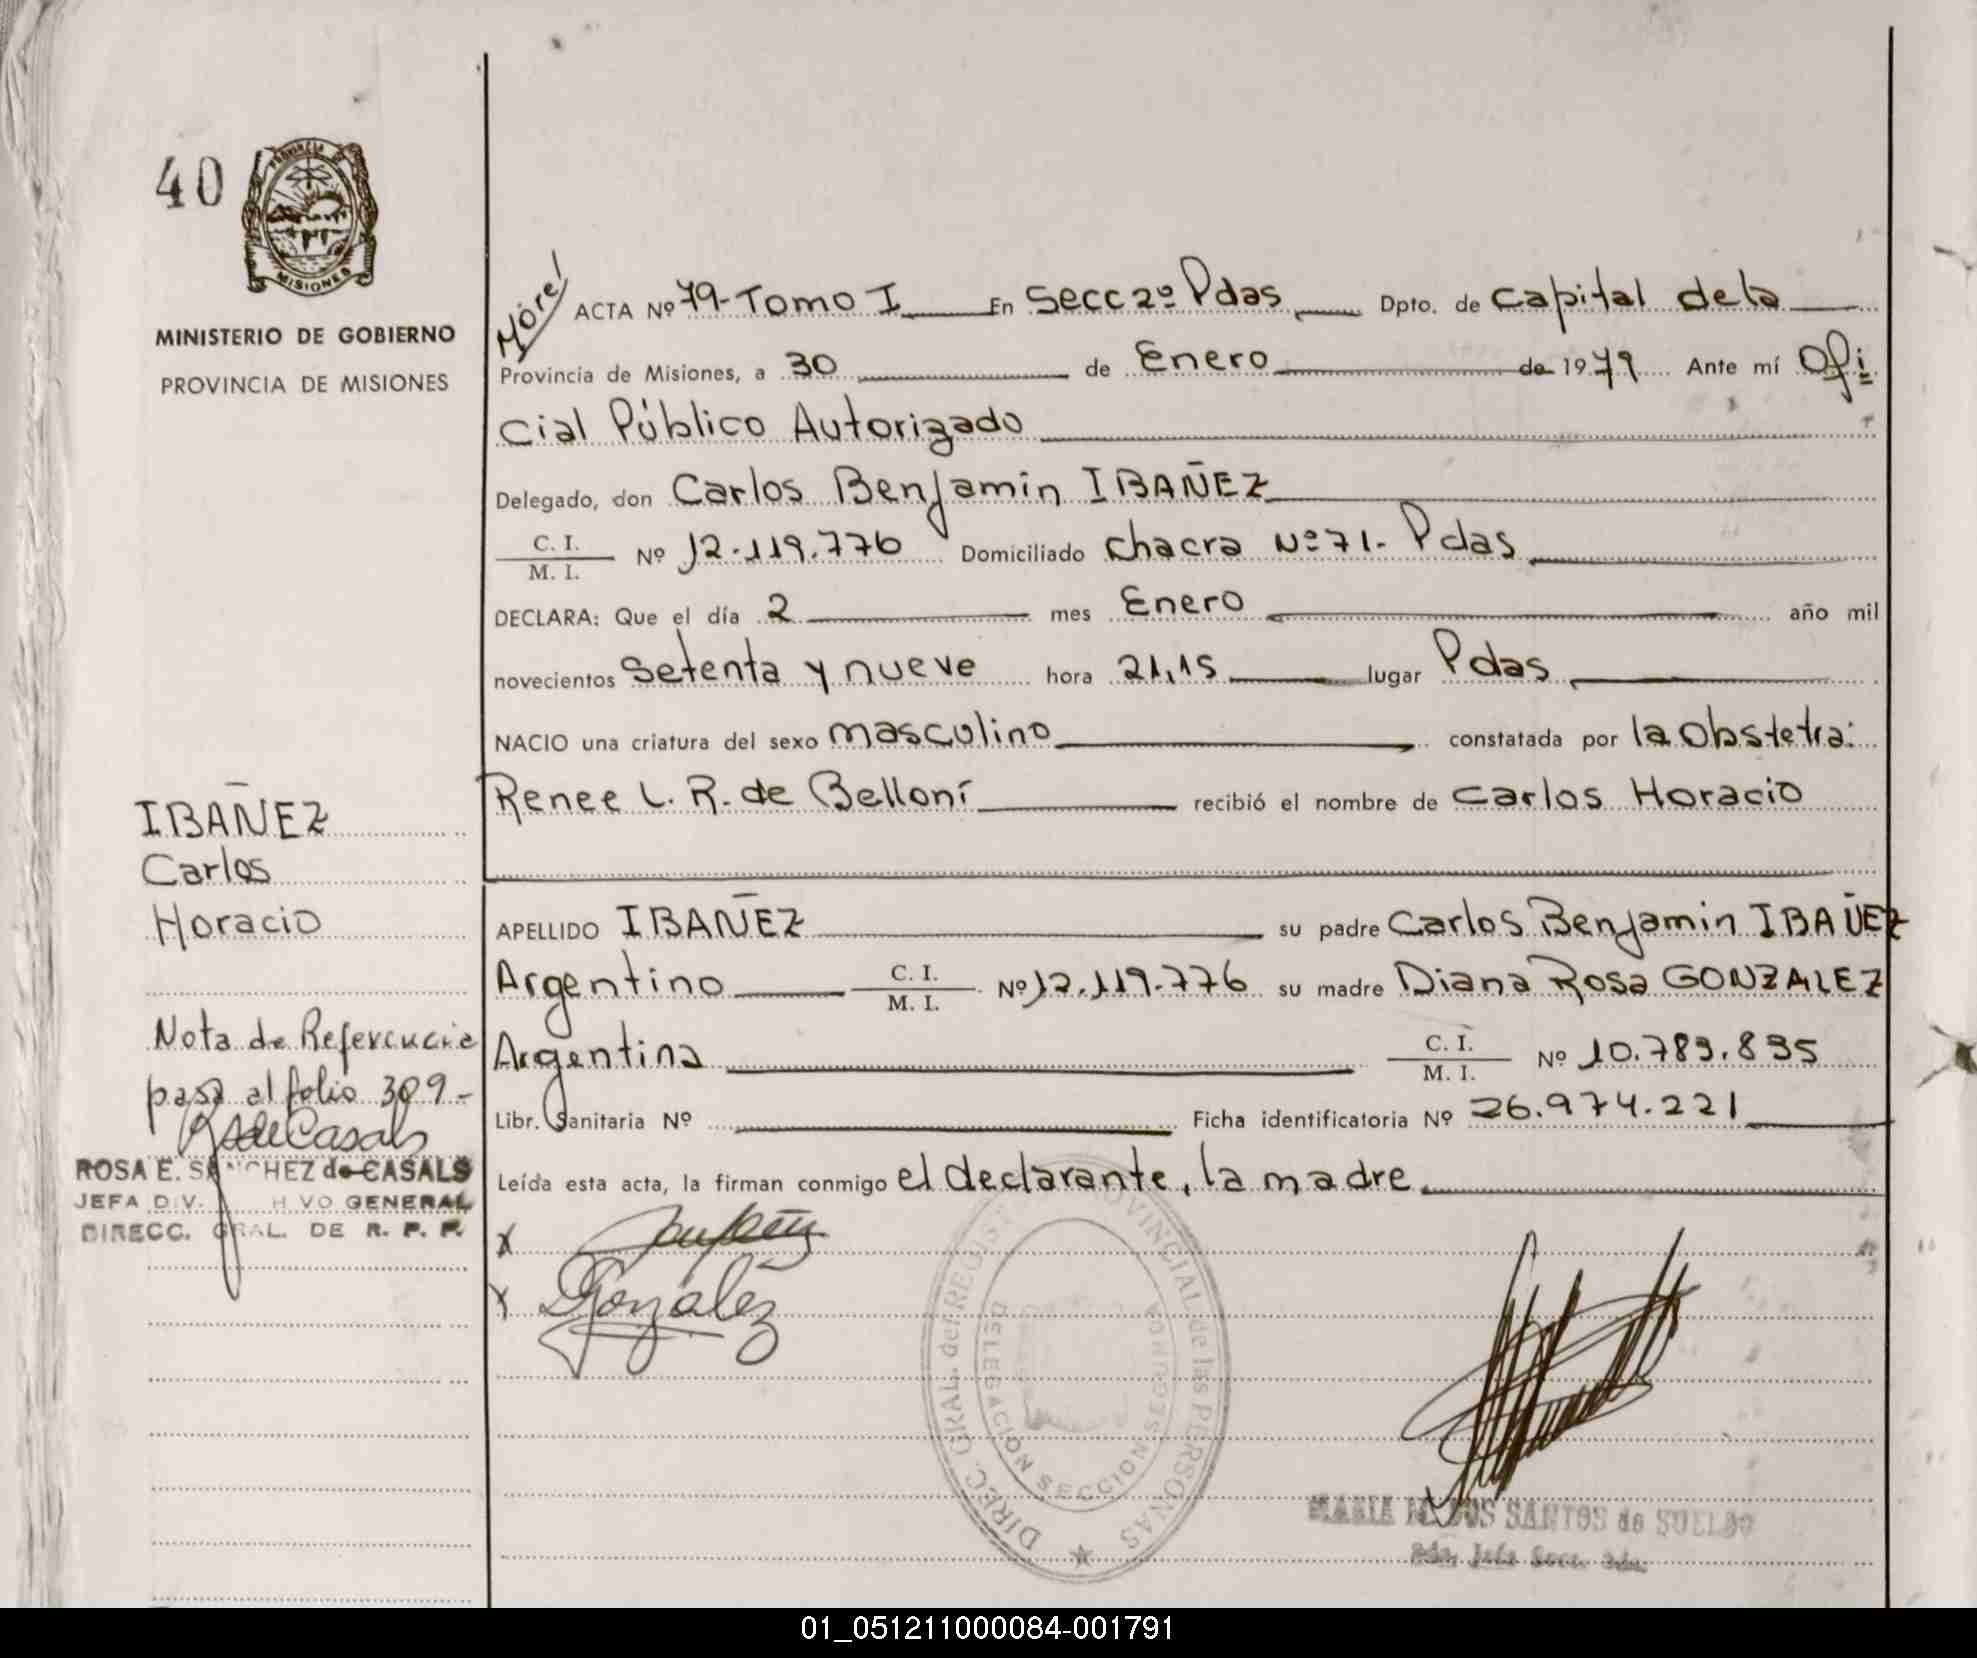 40
PROVINCIA DE
MISIONES
MINISTERIO DE GOBIERNO
PROVINCIA DE MISIONES
ACTA Nº 79-Tomo I En Secc 2º Pdas Dpto. de Capital de la
Provincia de Misiones, a 30 de Enero de 1979 Ante mí Ofi
cial Público Autorizado
Delegado, don Carlos Benjamin IBAÑEZ
C. I.
M. I. Nº 12.119.776 Domiciliado chacra Nº 71- Pdas
DECLARA: Que el día 2 mes Enero año mil
novecientos setenta y nueve hora 21,15 lugar Pdas
NACIO una criatura del sexo masculino constatada por la Obstetra:
Renee L. R. de Belloni recibió el nombre de Carlos Horacio
IBAÑEZ
Carlos
Horacio
APELLIDO IBAÑEZ su padre Carlos Benjamin IBAÑEZ
Argentino C. I.
M. I. Nº 12.119.776 su madre Diana Rosa GONZALEZ
Argentina C. I.
M. I. Nº 10.783.835
Libr. Sanitaria Nº Ficha identificatoria Nº 26.974.221
Leída esta acta, la firman conmigo el declarante, la madre
Nota de Referencia
pasa al folio 309-
RSdeCasals
ROSA E. SANCHEZ de CASALS
JEFA DIV. GENERAL
DIRECC. GRAL. DE R. P. P.
X
X Gonzalez
DIRECC. GRAL. del REGISTRO PROVINCIAL de las PERSONAS
DELEGACION SECCION SEGUNDA
MARIA DOS SANTOS de SUELDO
Jefa Secc. 2da.
01_051211000084-001791